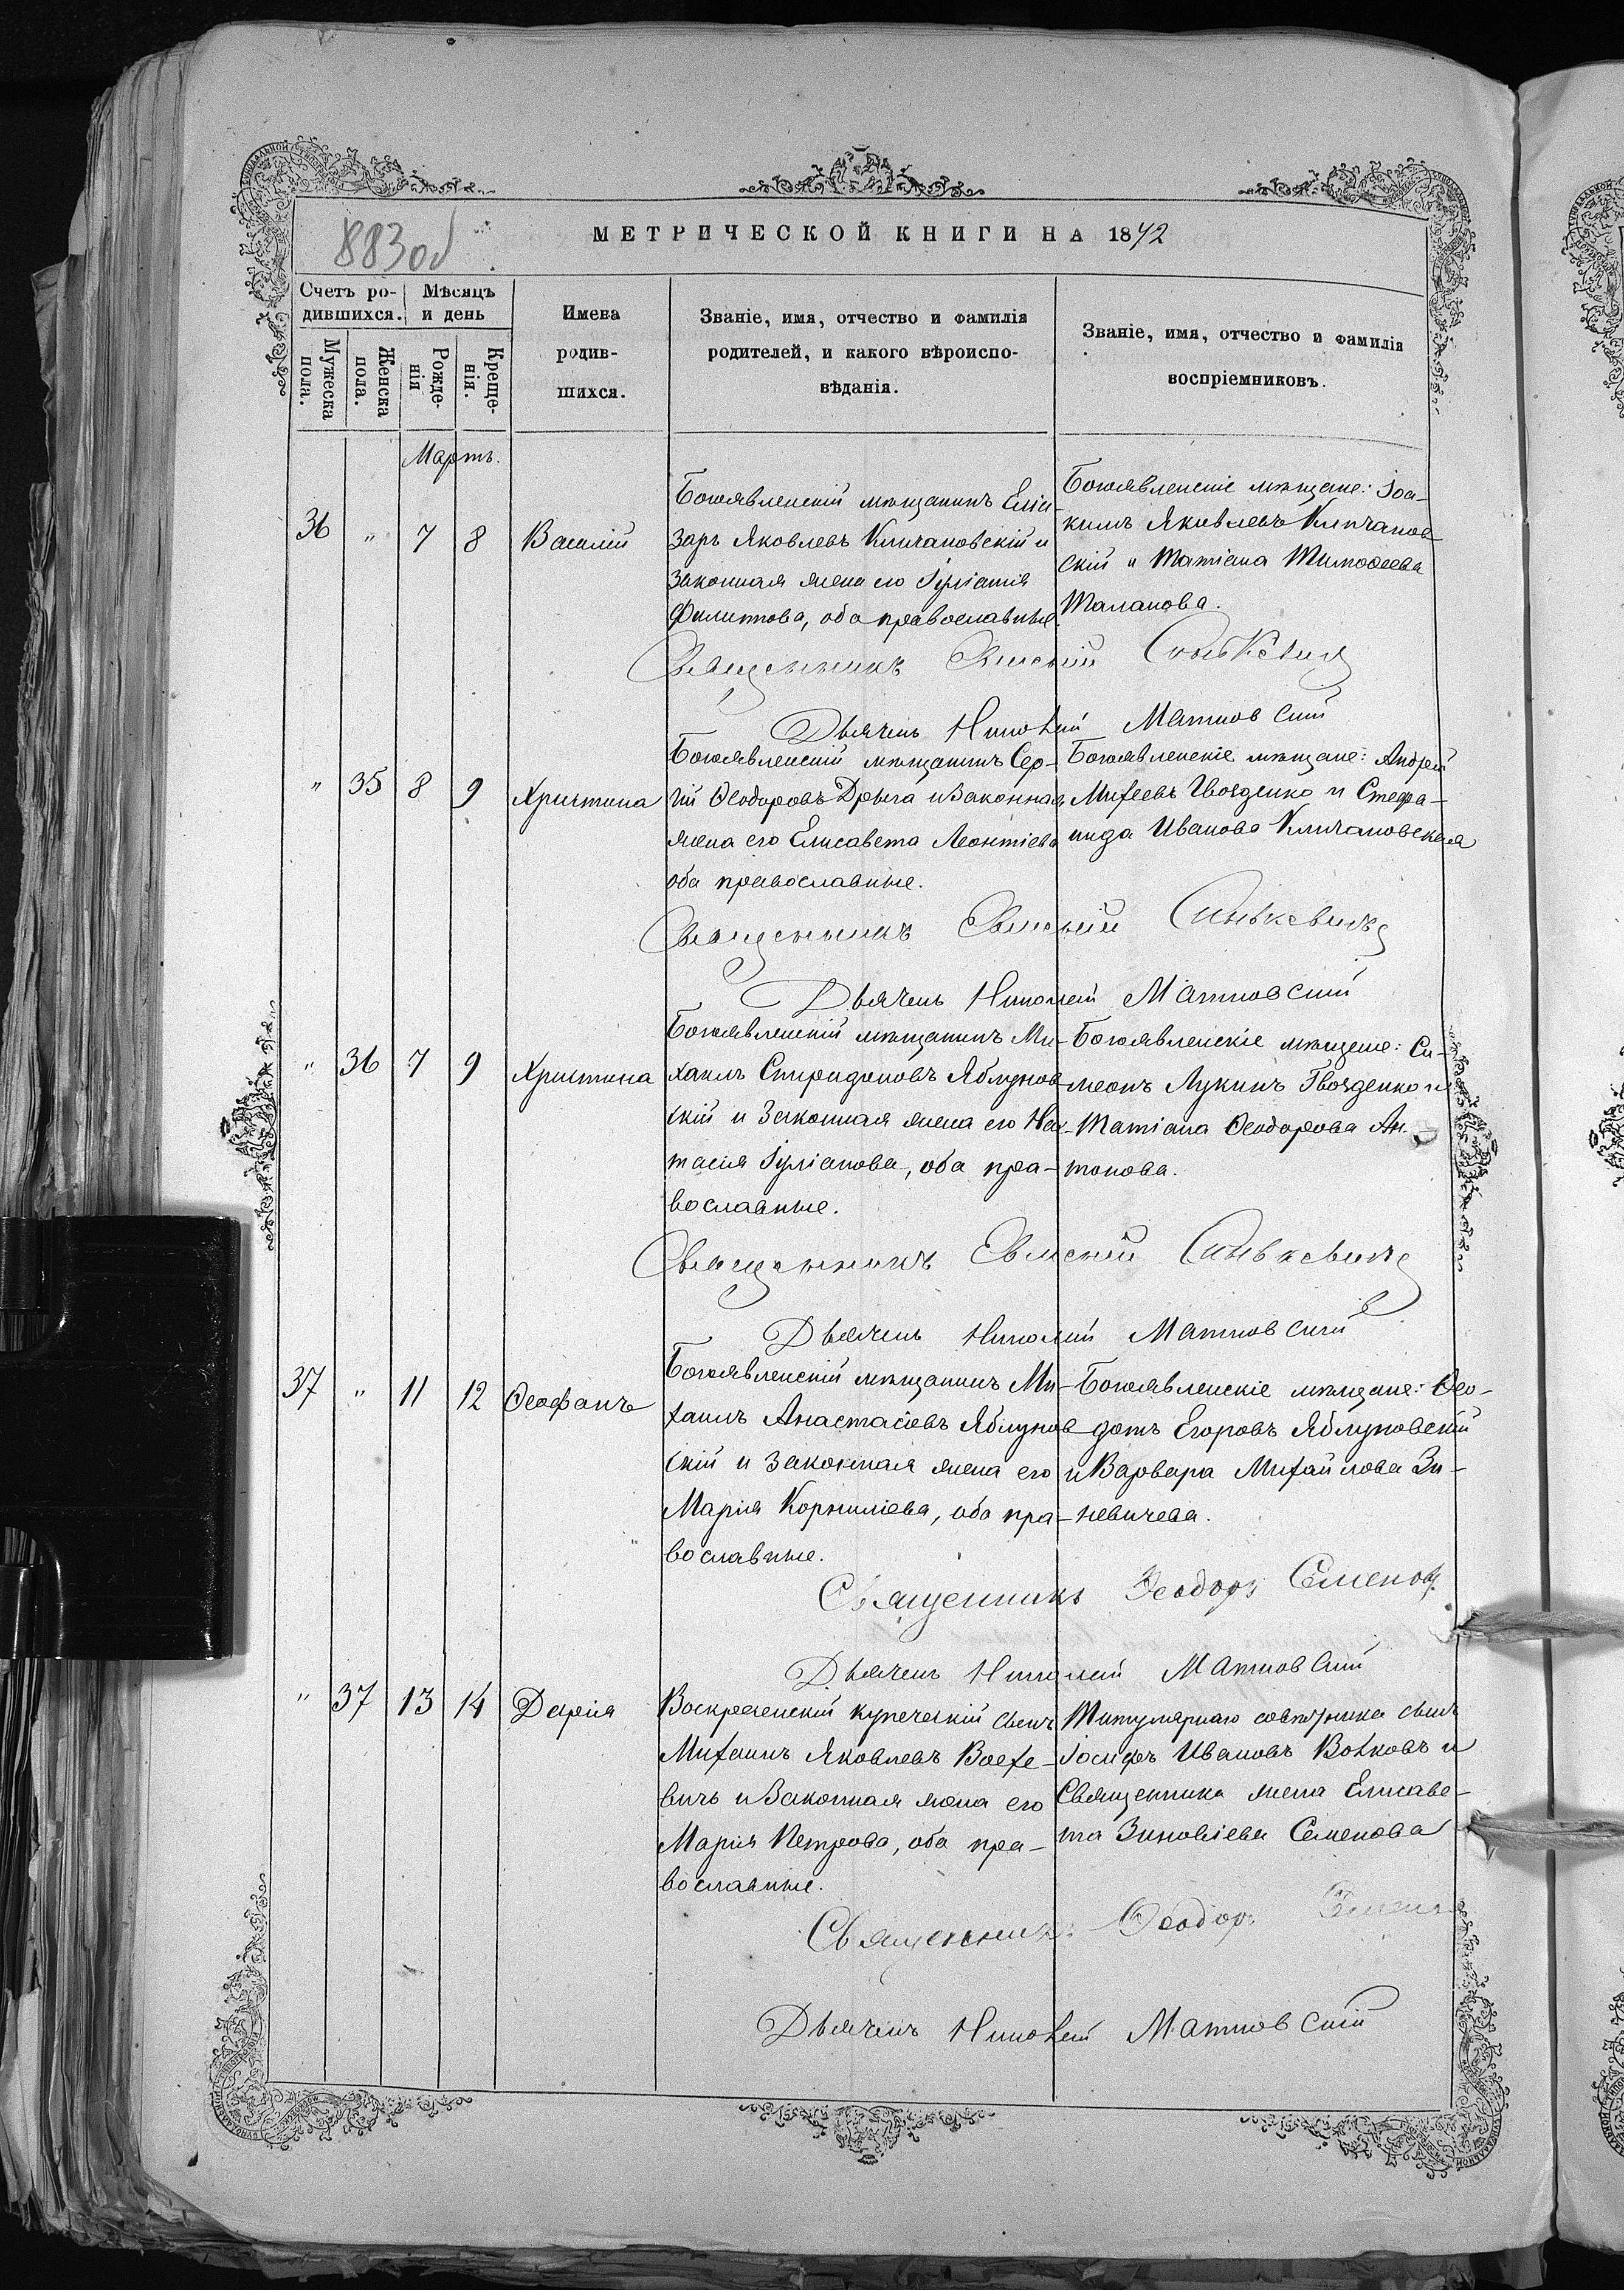 883 об
МЕТРИЧЕСКОЙ КНИГИ НА 1872
Счетъ ро-
дившихся.
Мѣсяцъ
и день
Мужеска
пола.
Женска
пола.
Рожде-
нія
Креще-
нія.
Имена
родив-
шихся.
Званіе, имя, отчество и фамилія
родителей, и какого вѣроиспо-
вѣданія.
Званіе, имя, отчество и фамилія
воспріемниковъ.
Мартъ.
36 " 7 8 Василій
Богоявленскій мѣщанинъ Елиа-
заръ Яковлевъ Кличановскій и
законная жена его Іуліанія
Филиппова, оба православные.
Богоявленскіе мѣщане: Іоа-
кимъ Яковлевъ Кличанов-
скій и Татіана Тимоѳеева
Таланова.
Священникъ Евменій Синькевичъ
Дьячекъ Николай Матковскій
" 35 8 9 Христина
Богоявленскій мѣщанинъ Сер-
гій Ѳеодоровъ Дрыга и законная
жена его Елисавета Леонтіева
оба православные.
Богоявленскіе мѣщане: Андрей
Михеевъ Гвозденко и Стефа-
нида Иванова Кличановская
Священникъ Евменій Синькевичъ
Дьячекъ Николай Матковскій
" 36 7 9 Христина
Богоявленскій мѣщанинъ Ми-
хаилъ Спиридоновъ Яблунов-
скій и законная жена его Нас-
тасія Іуліанова, оба пра-
вославные.
Богоявленскіе мѣщане: Си-
меонъ Лукинъ Гвозденко и
Татіана Ѳеодорова Ан-
тонова.
Священникъ Евменій Синькевичъ
Дьячекъ Николай Матковскій
37 " 11 12 Ѳеофанъ
Богоявленскій мѣщанинъ Ми-
хаилъ Анастасіевъ Яблунов-
скій и законная жена его
Марія Корниліева, оба пра-
вославные.
Богоявленскіе мѣщане: Ѳео-
дотъ Егоровъ Яблуновскій
и Варвара Михайлова Зи-
невичева.
Священникъ Ѳеодоръ Семеновъ
Дьячекъ Николай Матковскій
" 37 13 14 Дарія
Воскресенскій купеческій сынъ
Михаилъ Яковлевъ Воехе-
вичъ и законная жена его
Марія Петрова, оба пра-
вославные.
Титулярнаго совѣтника сынъ
Іосифъ Ивановъ Волковъ и
Священника жена Елисаве-
та Зиновіева Семенова
Священникъ Ѳеодоръ Семеновъ
Дьячекъ Николай Матковскій